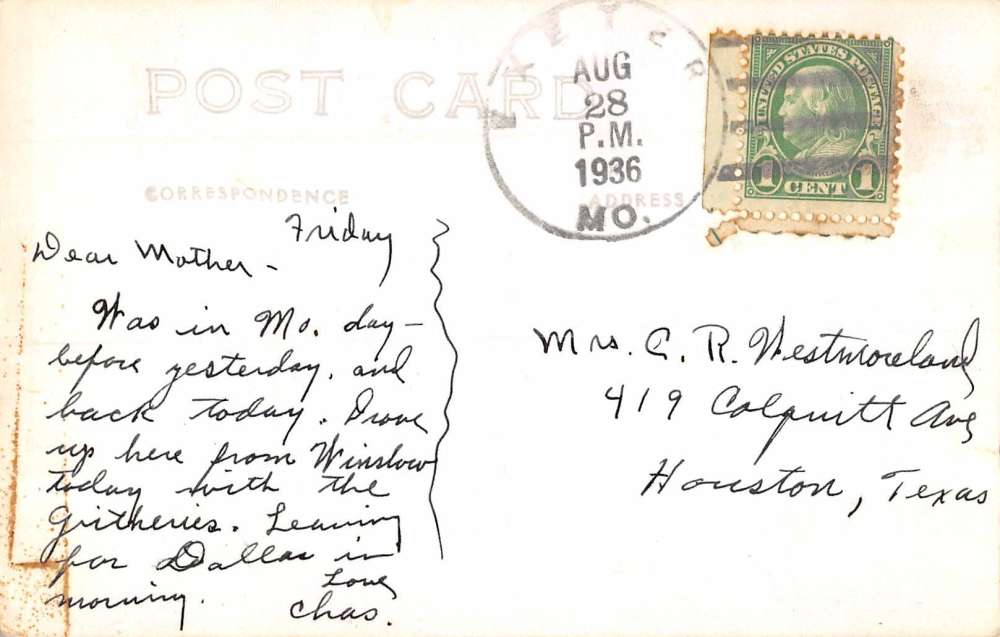 POST CARD
AUG
28
P.M.
1936
MO.
UNITED STATES POSTAGE
1 CENT 1
CORRESPONDENCE
ADDRESS
Friday
Dear Mother -
Was in Mo. day-
before yesterday, and
back today. Drove
up here from Winslow
today with the
Leaving
for Dallas in
morning.
Love
Chas.
Mrs. C. R. Westmoreland
419 Colquitt Ave
Houston, Texas